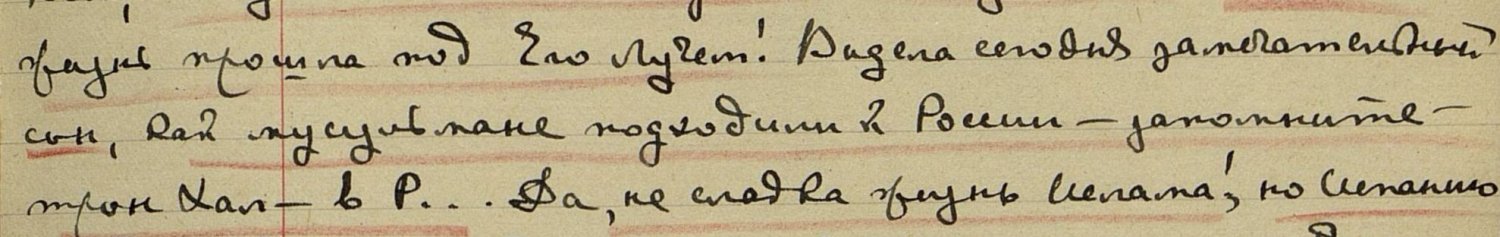 жизнь прошла под Его Лучем! Видела сегодня замечательный
сон, как мусульмане подходили к России — запомните —
трон Хал — в Р... Да, не сладка жизнь Ислама!, но Испанию